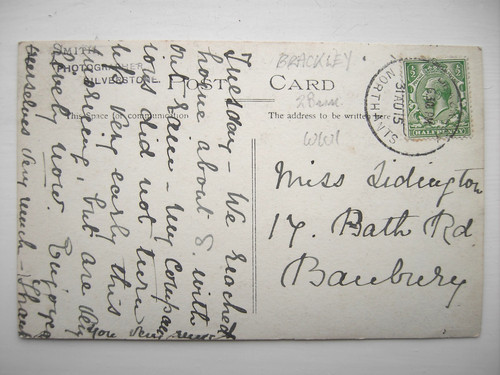 SMITH
PHOTOGRAPHER
SILVERSTONE
POST CARD
This Space for communication
The address to be written here
BRACKLEY
WW1
31 AU 15
NORTHANTS
HALFPENNY
Miss Lidington
17. Bath Rd
Banbury
Tuesday - We reached
home about 8. with
out rain - My compan
ions did not turn
up very early this
morning, but are very
lively now. Enjoyed
ourselves very much - Thank
you very much